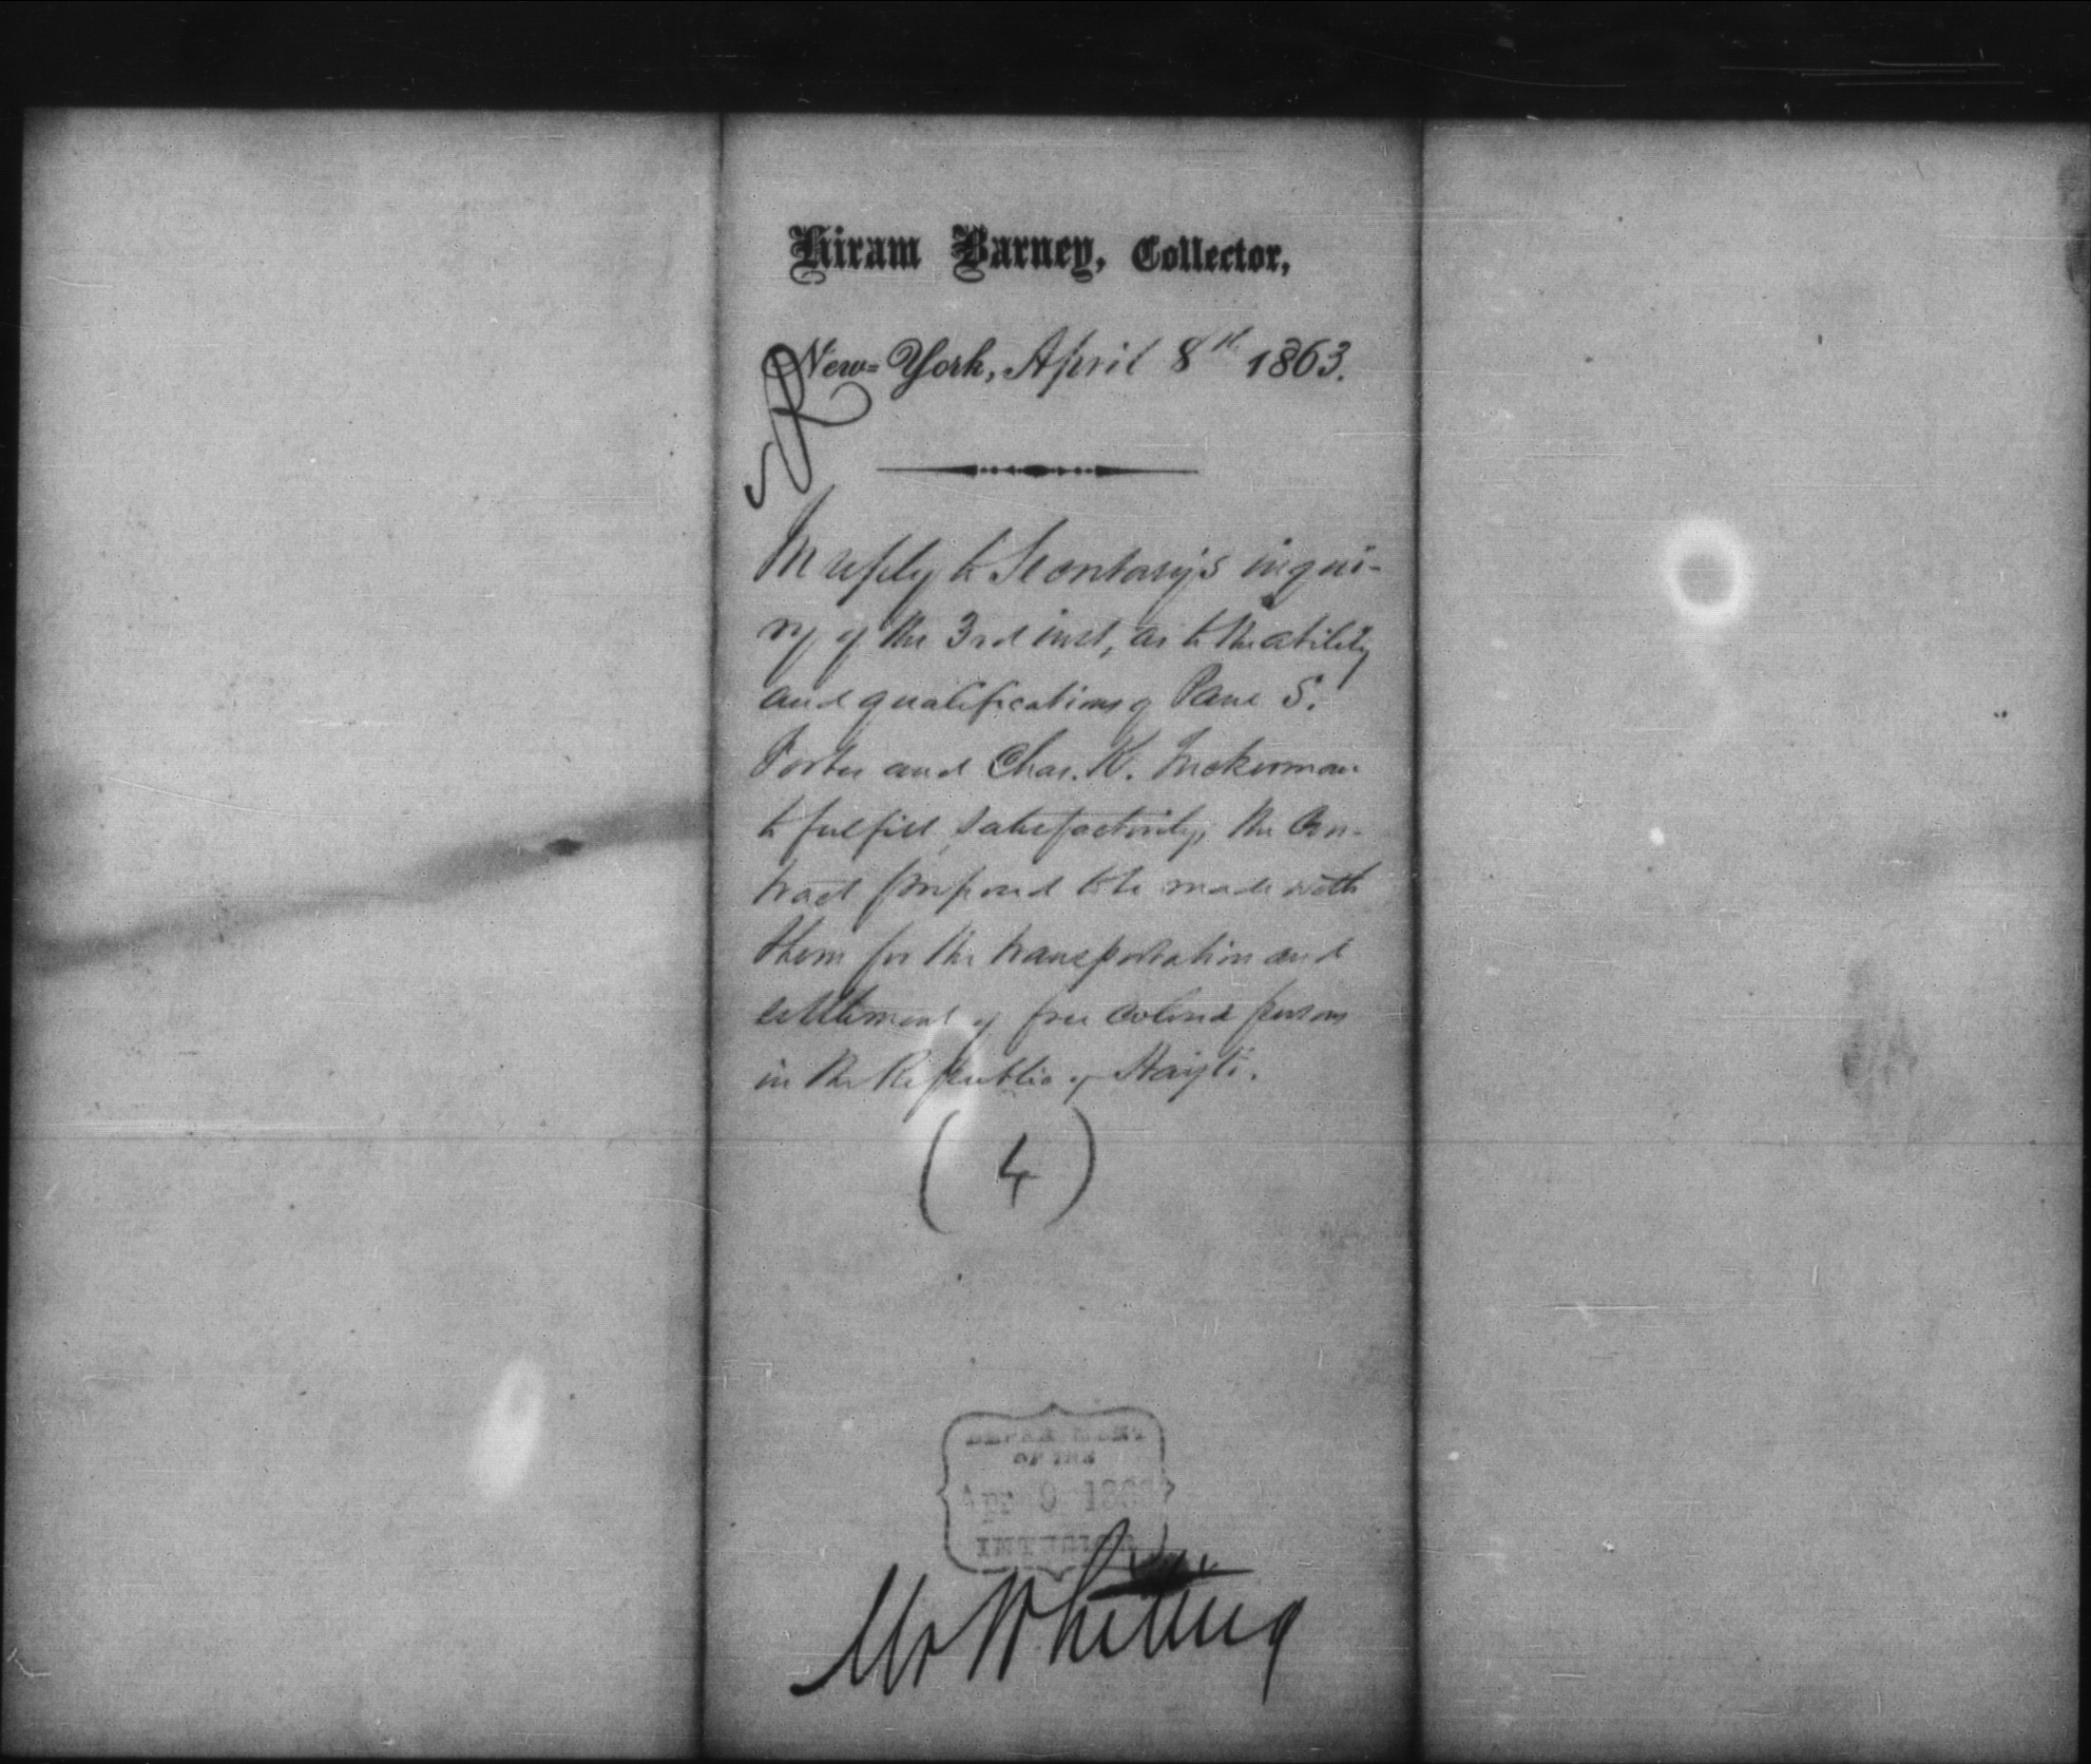 Hiram Barney, Collector,
New-York, April 8th 1863.
In reply to Secretary's inqui-
ry of the 3rd inst, as to the ability
and qualifications of Paul S.
Forbes and Chas. K. Tuckerman
to fulfill satisfactorily, the Con-
tract proposed to be made with
them for the transportation and
settlement of free colored persons
in the Republic of Hayti.
(4)
DEPARTMENT
OF THE
Apr 9 1863
INTERIOR
Mr Whiting